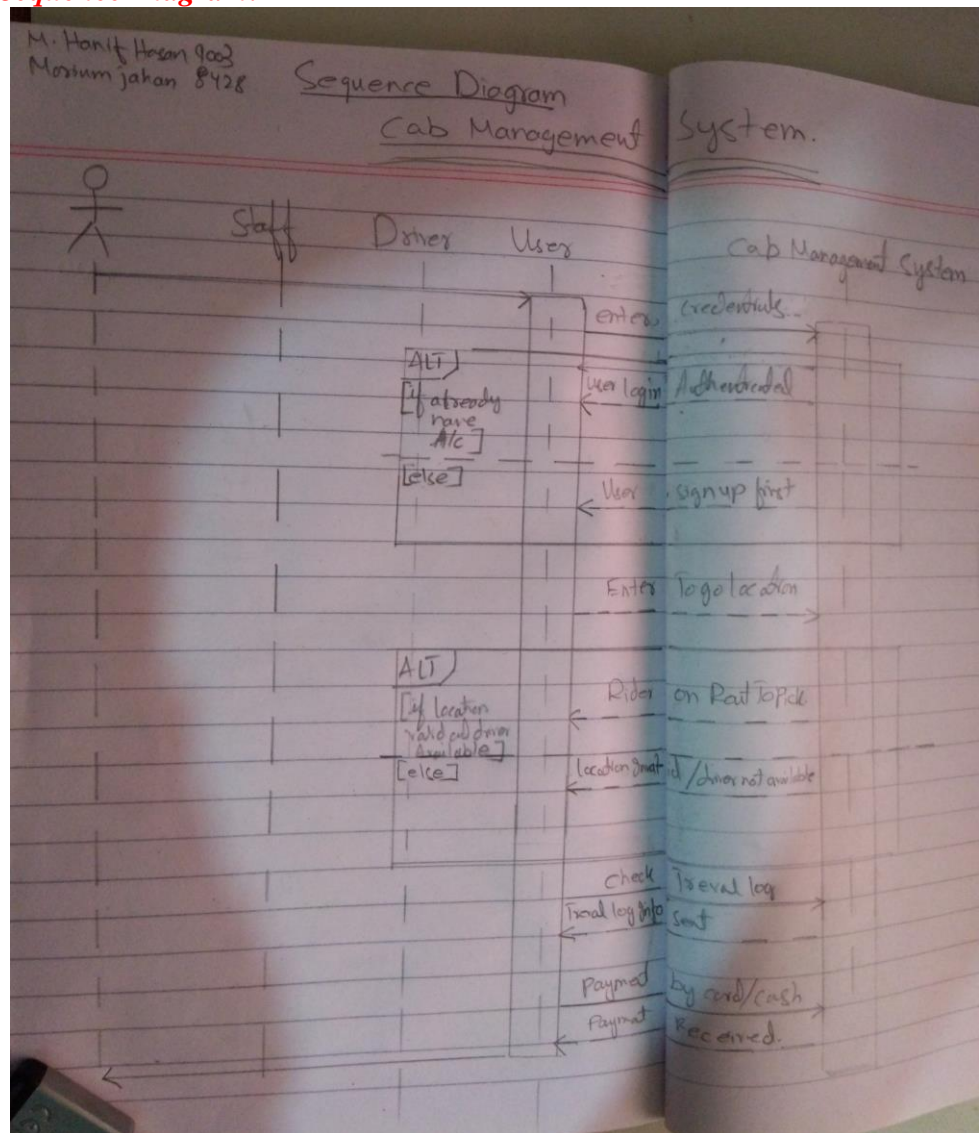 M. Hanif Hasan 9003
Morium jahan 8428
Sequence Diagram
Cab Management System.
Staff Driver User Cab Management System
enter credentials
ALT
User login Authenticated
[if already
have
A/c]
[else]
User signup first
Enter To go location
ALT
[if location
valid and driver
Available]
Rider on Rout To Pick
[else]
location Invalid / driver not available
check Treval log
Treval log Info sent
Payment by card/cash
Payment Received.